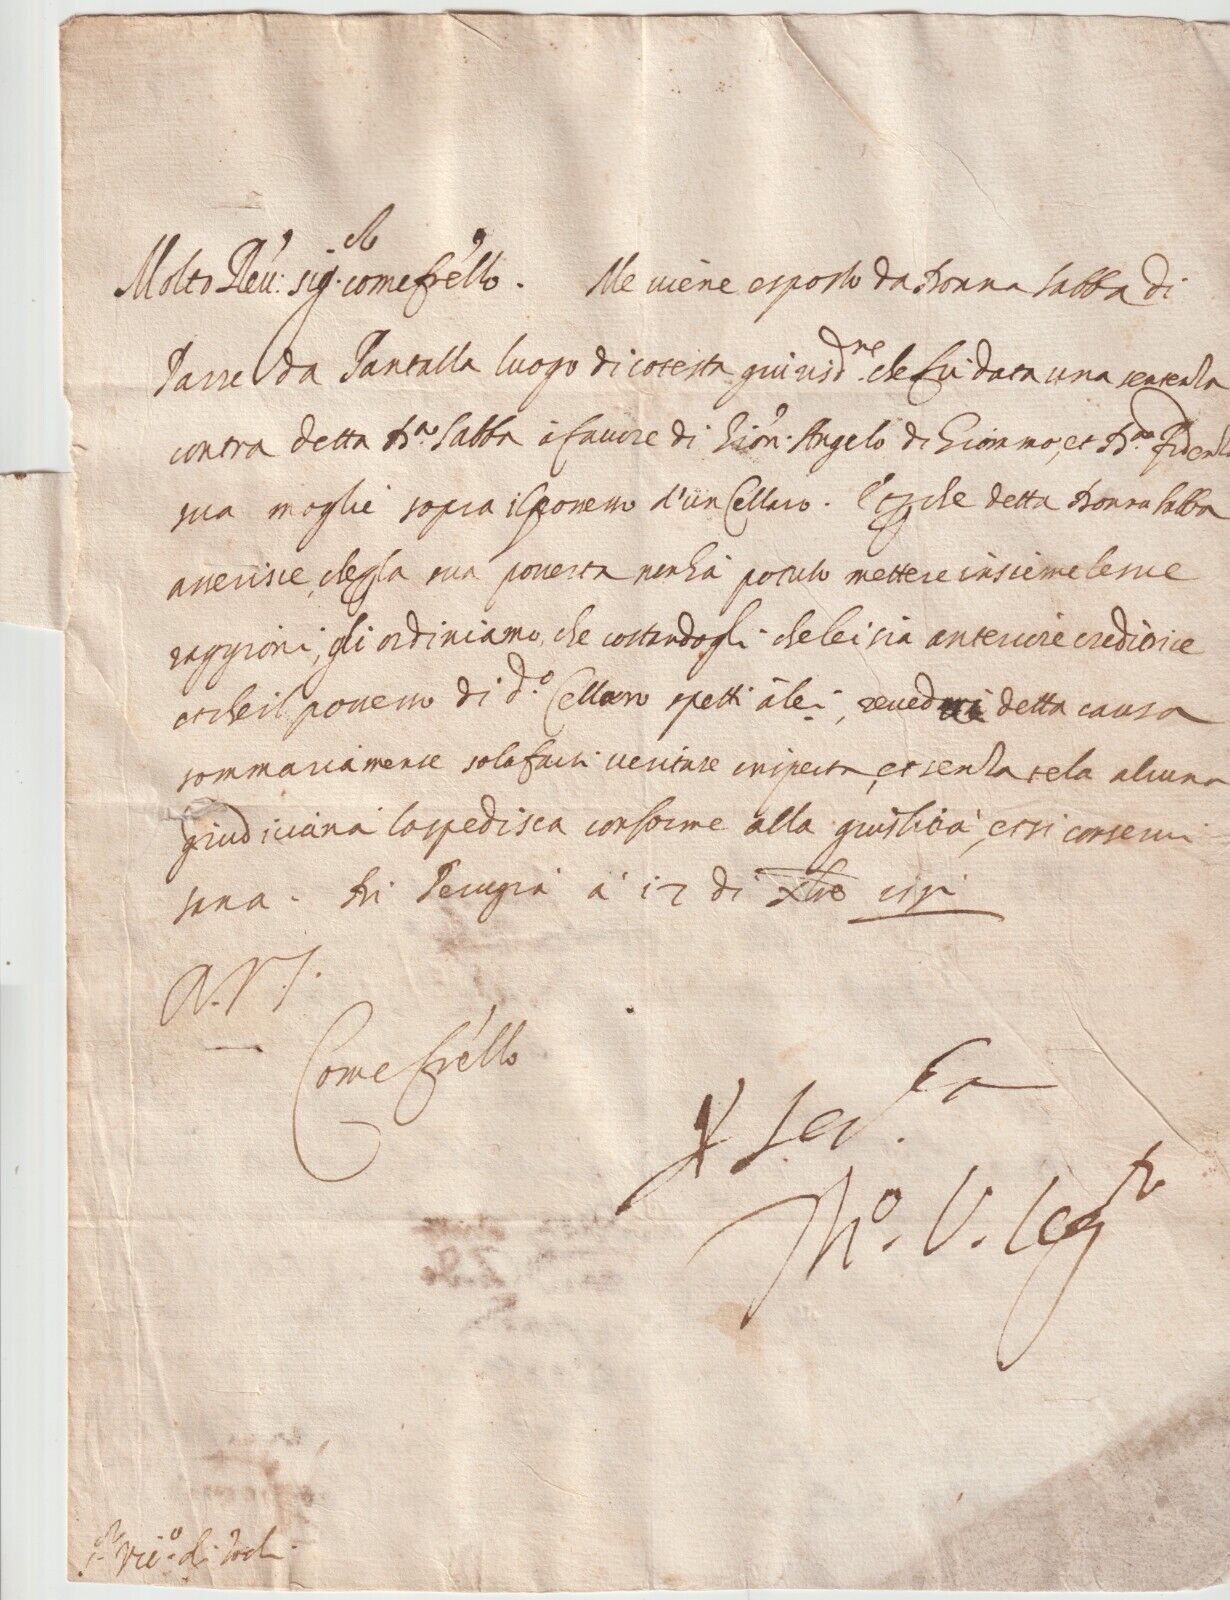 Molto Rev: sig.re come fr'ello. Me viene esposto da Donna Sabba di
Parre da Pantalla luogo di cotesta giurisd.ne che fù data una sentenza
contra detta D.a Sabba à favore di Gion: Angelo di Giommo, et D.a
sua moglie sopra il possesso d'un Cellaro. E che detta Donna Sabba
asserisce, che per la sua poverta non hà potuto mettere insieme le sue
raggioni, gli ordiniamo, che costandogli che lei sia anteriore creditrice
et che il possesso di d.o Cellaro spetti à lei, reveda detta causa
sommariamente sola facti veritate inspecta, et senza tela alcuna
giudiciaria la spedisca conforme alla giustitia, et si conservi
sana. Di Perugia à 17 di Xbre
A.V.S.
Come fr'ello
Tho. V. Leg.to
s.r Vic.o di Todi.